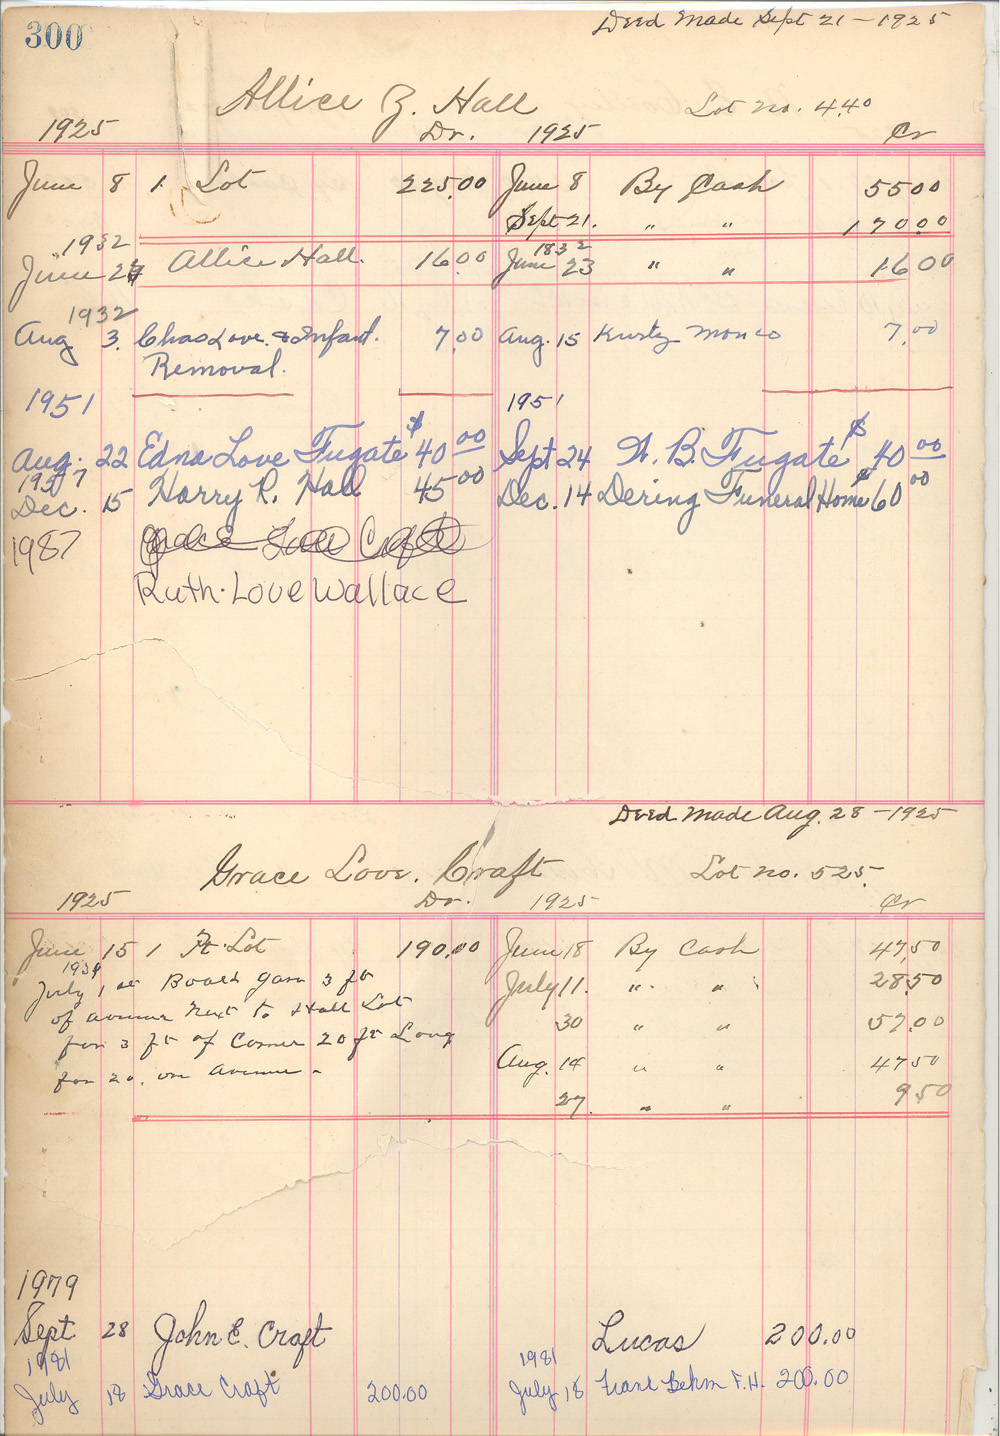 300
Deed Made Sept 21-1925
Allice Z. Hall Lot no. 440
1925 Dr. 1925 Cr
June 8 1 Lot 225.00 June 8 By Cash 55 00
Sept 21. " " 170.00
1932 1832
June 24 Allice Hall. 16.00 June 23 " " 16 00
1932
Aug 3. Chas Love. & Infant. 7.00 Aug. 15 7.00
Removal.
1951 1951
Aug. 22 Edna Love Fugate $40 00 Sept 24 F. B. Fugate $40 00
1957
Dec. 15 Harry R. Hall 45 00 Dec. 14 Dering Funeral Home $60 00
1987 Grace Love Craft
Ruth Love Wallace
Deed Made Aug. 28-1925
Grace Love. Craft Lot no. 525.
1925 Dr. 1925 Cr
June 15 1 Pt. Lot 190.00 June 18 By Cash 47.50
July 1 st Board gave 3 ft July 11. " " 28.50
of avenue next to Hall Lot
30 " " 57.00
for 3 ft of Corner 20 ft Long
Aug. 14 " " 47 50
for 20. on Avenue-
27. " " 9 50
1979
Sept 28 John E. Craft Lucas 200.00
1981 1981
July 18 Grace Craft 200.00 July 18 Frank Behm F.H. 200.00